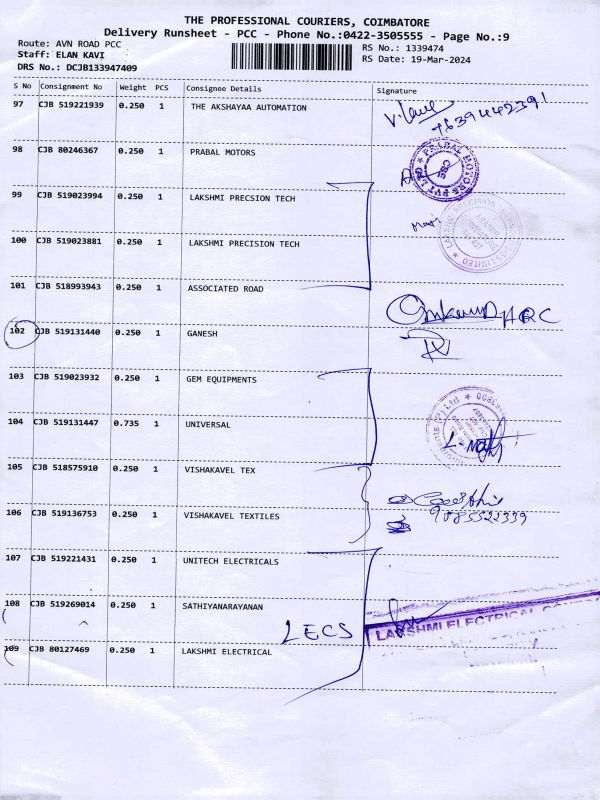 THE PROFESSIONAL COURIERS, COIMBATORE
Delivery Runsheet - PCC - Phone No.:0422-3505555 - Page No.:9
Route: AVN ROAD PCC
RS No.: 1339474
Staff: ELAN KAVI
RS Date: 19-Mar-2024
DRS No.: DCJB133947409
S No Consignment No Weight PCS Consignee Details Signature
97 CJB 519221939 0.250 1 THE AKSHAYAA AUTOMATION
98 CJB 80246367 0.250 1 PRABAL MOTORS
99 CJB 519023994 0.250 1 LAKSHMI PRECSION TECH
100 CJB 519023881 0.250 1 LAKSHMI PRECISION TECH
101 CJB 518993943 0.250 1 ASSOCIATED ROAD
102 CJB 519131440 0.250 1 GANESH
103 CJB 519023932 0.250 1 GEM EQUIPMENTS
104 CJB 519131447 0.735 1 UNIVERSAL
105 CJB 518575910 0.250 1 VISHAKAVEL TEX
106 CJB 519136753 0.250 1 VISHAKAVEL TEXTILES
9885522339
107 CJB 519221431 0.250 1 UNITECH ELECTRICALS
108 CJB 519269014 0.250 1 SATHIYANARAYANAN
LECS
LAKSHMI ELECTRICAL
109 CJB 80127469 0.250 1 LAKSHMI ELECTRICAL